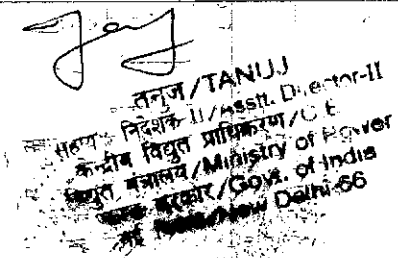 तनुज/TANUJ
सहायक निदेशक-II/Asstt. Director-II
केन्द्रीय विद्युत प्राधिकरण/C E
विद्युत मंत्रालय/Ministry of Power
सरकार/Govt. of India
नई New Delhi-66